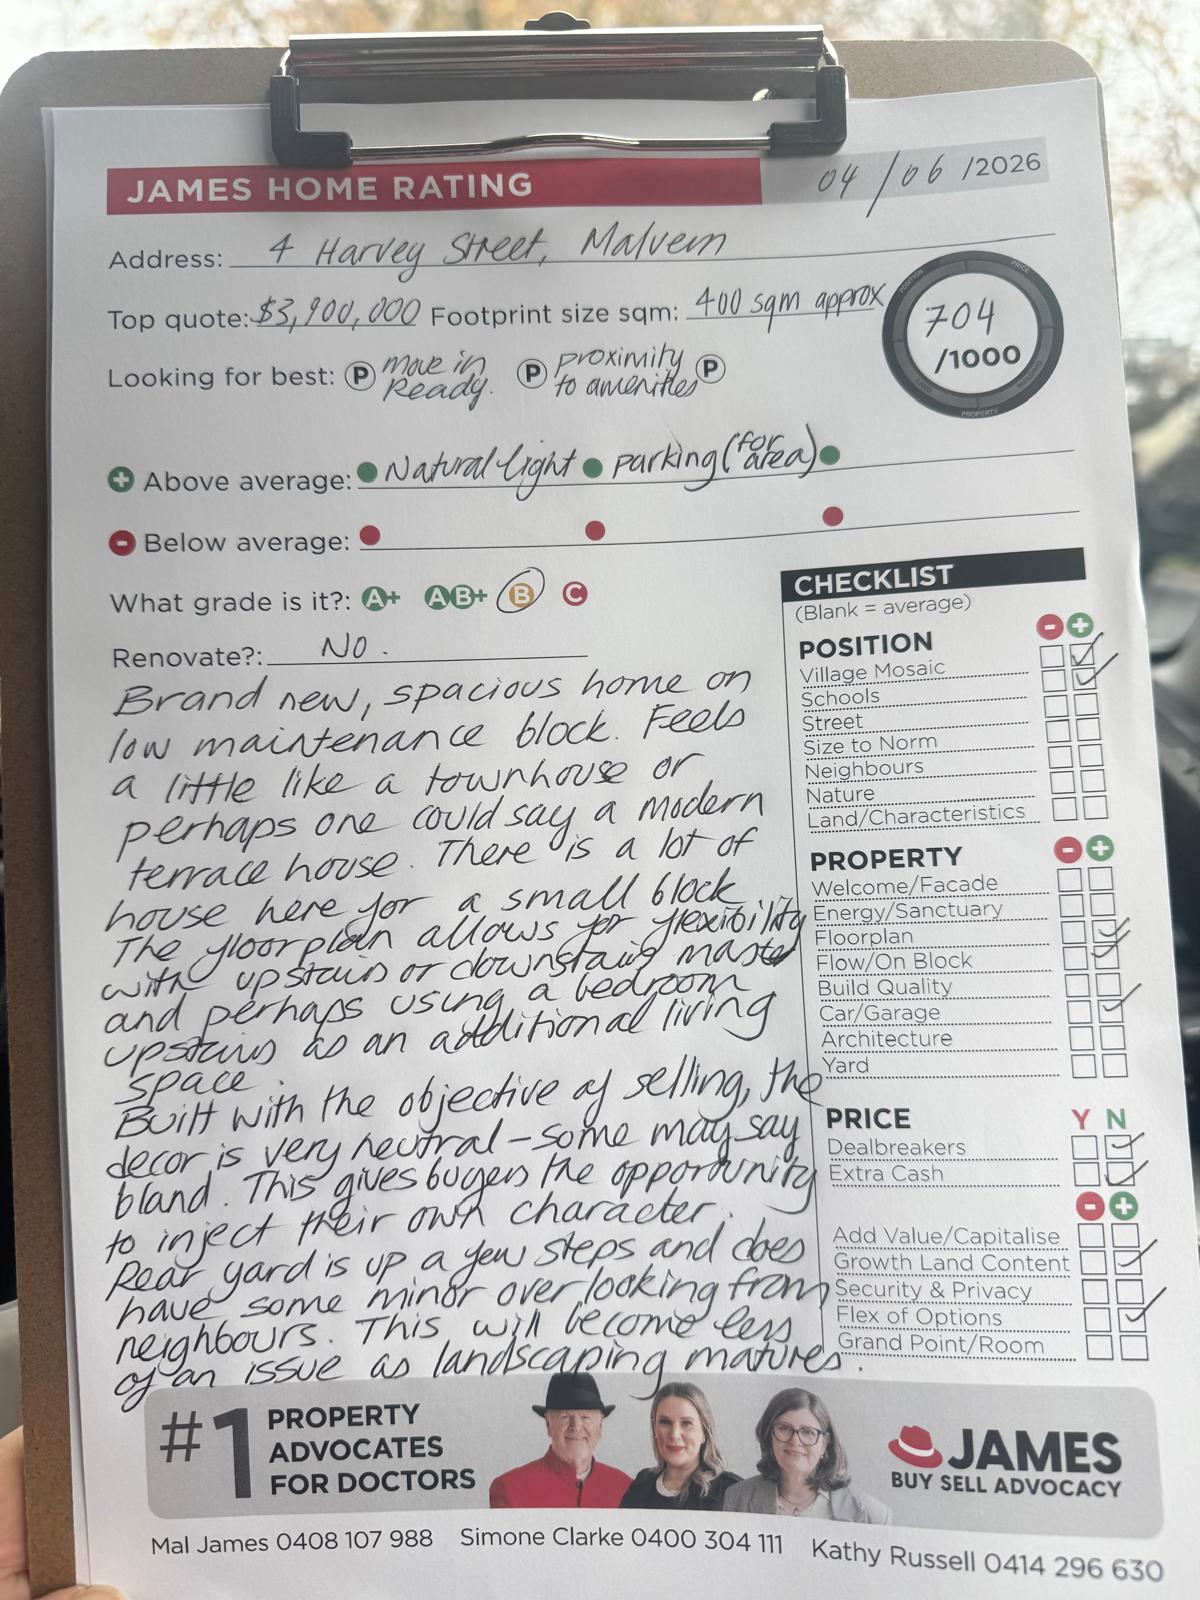 JAMES HOME RATING
04/06/2026
Address: 4 Harvey Street, Malvern
Top quote: $3,900,000 Footprint size sqm: 400 sqm approx
704
/1000
POSITION
PRICE
PROPERTY
Looking for best: P move in Ready. P proximity to amenities P
+ Above average: Natural light parking (for area)
- Below average:
What grade is it?: A+ AB+ B C
Renovate?: NO.
Brand new, spacious home on
low maintenance block. Feels
a little like a townhouse or
perhaps one could say a modern
terrace house. There is a lot of
house here for a small block
The floorplan allows for flexibility
with upstairs or downstairs master
and perhaps using a bedroom
upstairs as an additional living
space.
Built with the objective of selling, the
decor is very neutral - some may say
bland. This gives buyers the opportunity
to inject their own character.
Rear yard is up a few steps and does
have some minor overlooking from
neighbours. This will become less
of an issue as landscaping matures.
CHECKLIST
(Blank = average)
POSITION - +
Village Mosaic
Schools
Street
Size to Norm
Neighbours
Nature
Land/Characteristics
PROPERTY - +
Welcome/Facade
Energy/Sanctuary
Floorplan
Flow/On Block
Build Quality
Car/Garage
Architecture
Yard
PRICE Y N
Dealbreakers
Extra Cash
- +
Add Value/Capitalise
Growth Land Content
Security & Privacy
Flex of Options
Grand Point/Room
#1 PROPERTY
ADVOCATES
FOR DOCTORS
JAMES
BUY SELL ADVOCACY
Mal James 0408 107 988 Simone Clarke 0400 304 111 Kathy Russell 0414 296 630